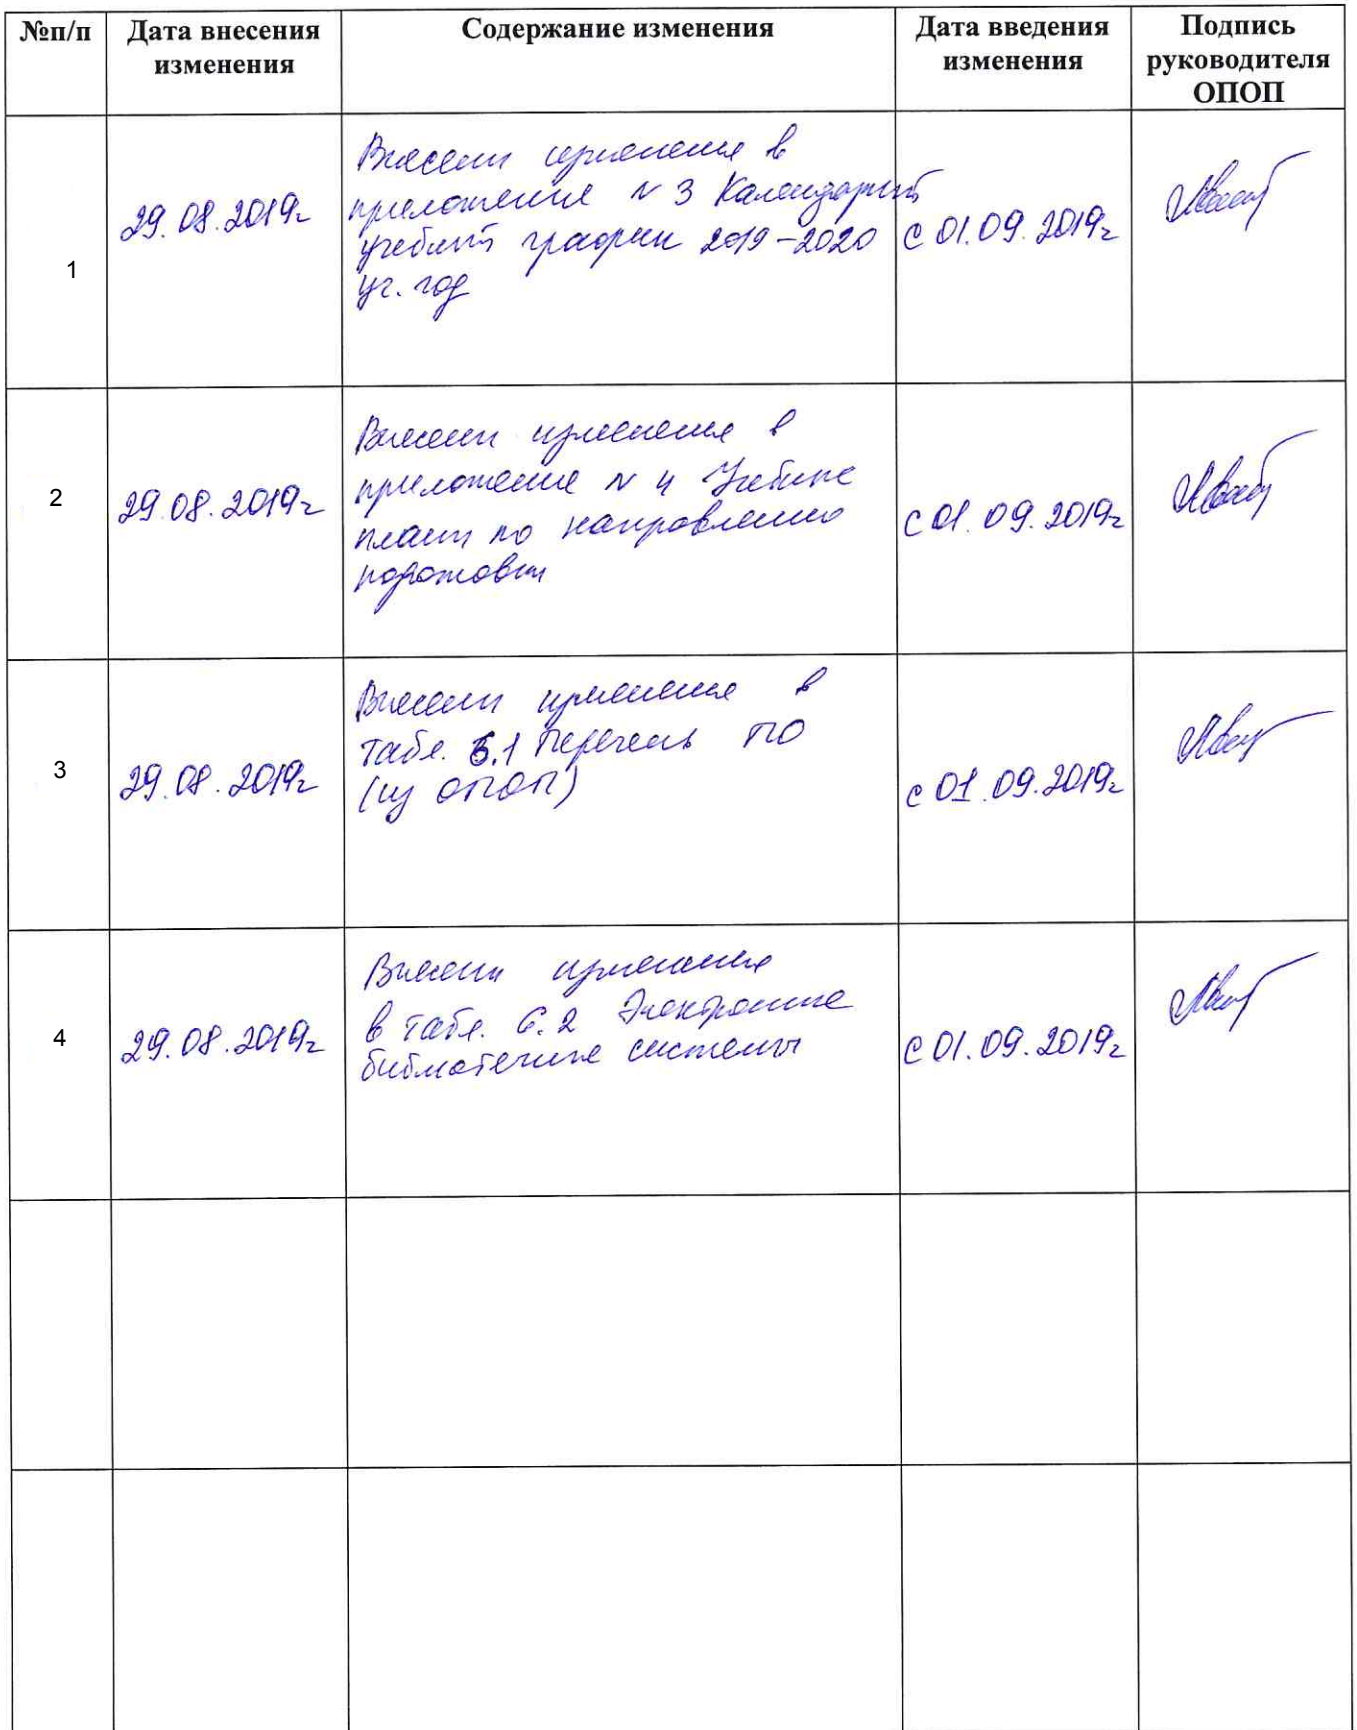 №п/п Дата внесения изменения Содержание изменения Дата введения изменения Подпись руководителя ОПОП
1
29.08.2019г
Внесены изменения в
приложение № 3 Календарный
учебный график 2019-2020
уч. год
с 01.09.2019г
2
29.08.2019г
Внесены изменения в
приложение № 4 Учебные
планы по направлению
подготовки
с 01.09.2019г
3
29.08.2019г
Внесены изменения в
табл. 6.1 Перечень ПО
(из ОПОП)
с 01.09.2019г
4
29.08.2019г
Внесены изменения
в табл. 6.2 Электронные
библиотечные системы
с 01.09.2019г